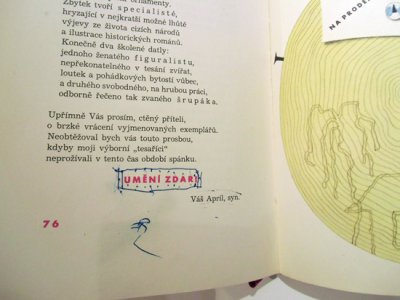 Zbytek tvoří specialisté,
hryzající v nejkratší možné lhůtě
výjevy ze života cizích národů
a ilustrace historických románů.
Konečně dva školené datly:
jednoho ženatého figuralistu,
nepřekonatelného v tesání zvířat,
loutek a pohádkových bytostí vůbec,
a druhého svobodného, na hrubou práci,
odborně řečeno tak zvaného šrupáka.
Upřímně Vás prosím, ctěný příteli,
o brzké vrácení vyjmenovaných exemplářů.
Neobtěžoval bych vás touto prosbou,
kdyby moji výborní „tesaříci"
neprožívali v tento čas období spánku.
UMĚNÍ ZDAR
Váš April, syn.
76
NA PRODE